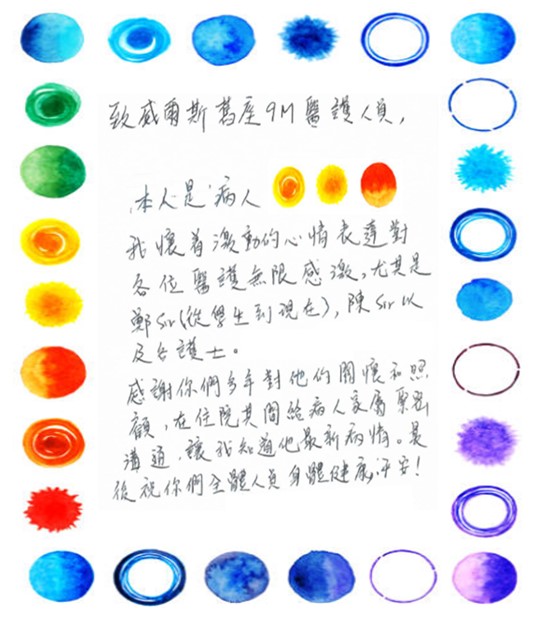 致威爾斯舊座9M醫護人員，
本人是病人
我懷着激動的心情表達對
各位醫護無限感激，尤其是
鄭Sir(從學生到現在)，陳Sir以
及各護士。
感謝你們多年對他的關懷和照
顧，在住院其間給病人家屬緊密
溝通，讓我知道他最新病情。最
後祝你們全體人員身體健康，平安！